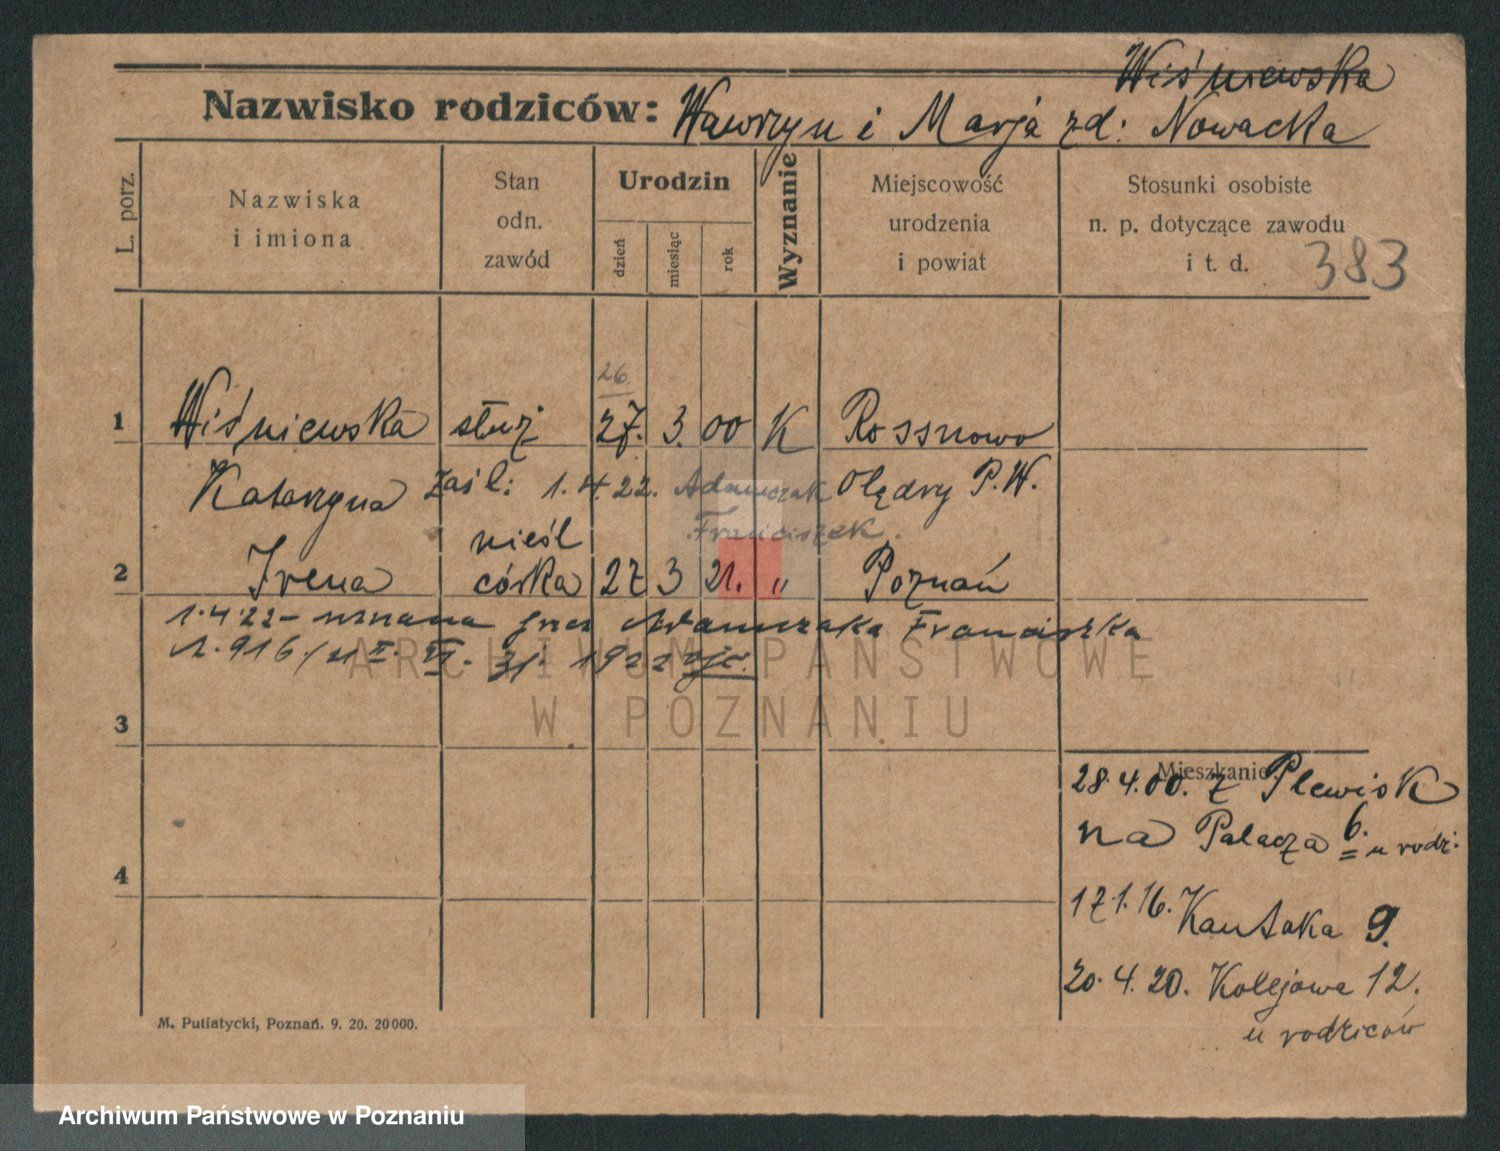 Wiśniewska
Nazwisko rodziców: Wawrzyn i Marja zd: Nowacka
L. porz.
Nazwiska
i imiona
Stan
odn.
zawód
Urodzin
dzień
miesiąc
rok
Wyznanie
Miejscowość
urodzenia
i powiat
Stosunki osobiste
n. p. dotyczące zawodu
i t. d.
383
26.
1 Wiśniewska służ 27. 3. 00 K Rossnowo
Katarzyna zaśl: 1.4.22. Adamczak Olędry P.W.
Franciszek.
nieśl
2 Irena córka 27 3 21. „ Poznań
1.4.22 – uznana przez Adamczaka Franciszka
1922
ARCHIWUM PAŃSTWOWE
W POZNANIU
3
Mieszkanie
28.4.00. z Plewisk
na Palacza 6. u rodz.
4
17.1.16. Kantaka 9.
20.4.20. Kolejowa 12.
u rodziców
M. Putiatycki, Poznań. 9. 20. 20000.
Archiwum Państwowe w Poznaniu